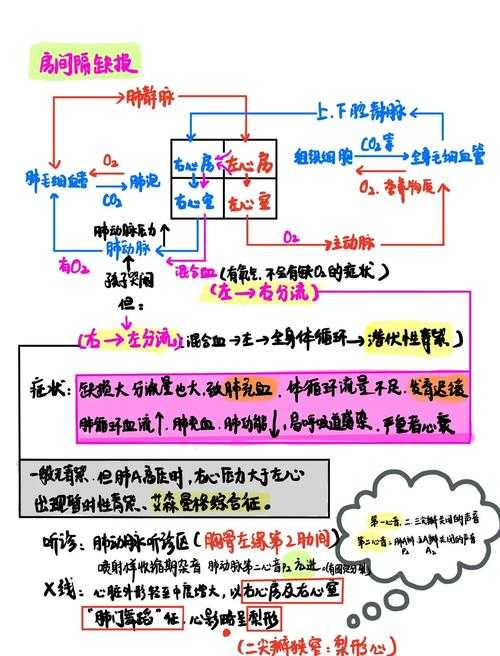 房间隔缺损
肺静脉
上.下腔静脉
右心房 左心房
右心室 左心室
组织细胞 CO₂等 全身毛细血管
O₂.营养物质
肺毛细血管 O₂ 肺泡
CO₂
肺动脉压力↑
肺动脉
O₂ 主动脉
有O₂ 混合血(有氧气.不会有缺O₂的症状)
孩子哭闹 (左→右分流)
但:
(右→左分流)(混合血→左→全身体循环→潜伏性青紫)
症状: 缺损大分流量也大,致肺充血. 体循环流量不足,发育迟缓
肺循环血流↑.肺充血.肺功能↓,易呼吸道感染.严重者心衰
一般无青紫.但肺A高压时,右心压力大于左心
出现暂时性青紫、艾森曼格综合征。
第一心音:二.三尖瓣关闭的声音
第二心音:肺A瓣.主A瓣关闭的声音
P₂ A₂
听诊:肺动脉听诊区(胸骨左缘第2肋间)
喷射性收缩期杂音 肺动脉第二心音P₂亢进.(有固定分裂)
X线: 心脏外形轻至中度增大,以右心房及右心室
"肺门舞蹈"征,心影略呈梨形
(二尖瓣狭窄:梨形心)